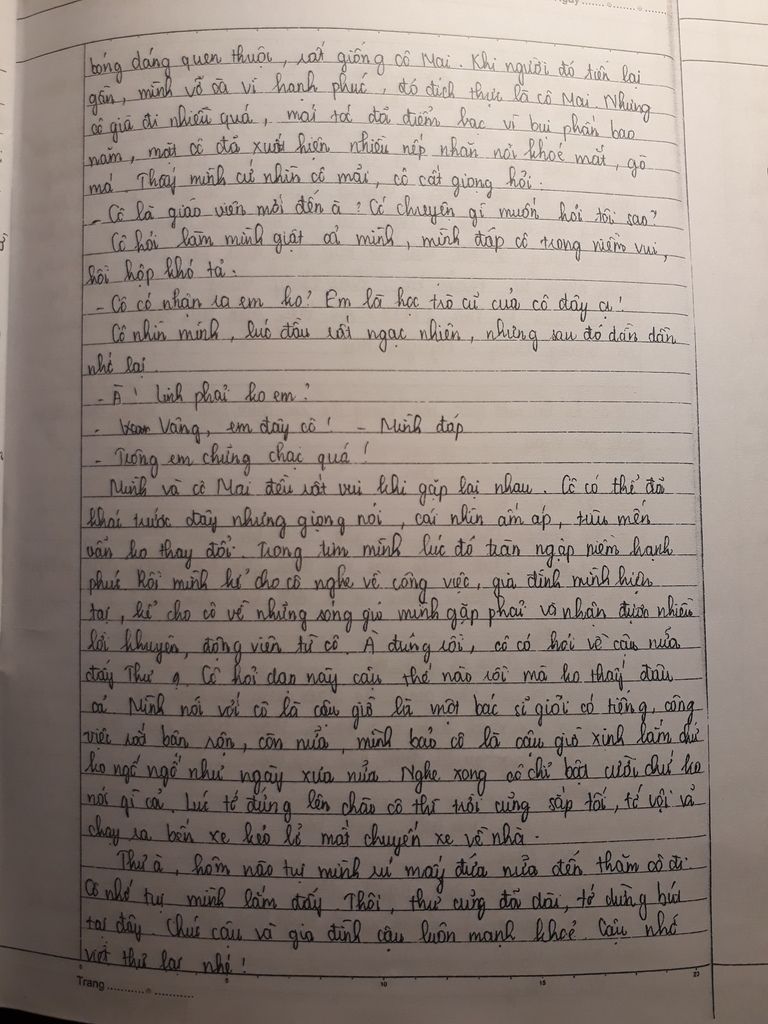 Ngày
bóng dáng quen thuộc, rất giống cô Mai. Khi người đó tiến lại
gần, mình vỡ oà vì hạnh phúc, đó đích thực là cô Mai. Nhưng
cô già đi nhiều quá, mái tóc đã điểm bạc vì bụi phấn bao
năm, mặt cô đã xuất hiện nhiều nếp nhăn nơi khoé mắt, gò
má. Thấy mình cứ nhìn cô mãi, cô cất giọng hỏi:
- Cô là giáo viên mới đến à? Có chuyện gì muốn hỏi tôi sao?
Cô hỏi làm mình giật cả mình, mình đáp cô trong niềm vui,
hồi hộp khó tả.
- Cô có nhận ra em ko? Em là học trò cũ của cô đây ạ!
Cô nhìn mình, lúc đầu rất ngạc nhiên, nhưng sau đó dần dần
nhớ lại.
- À! Linh phải ko em?
- Vâng, em đây cô! - Mình đáp
- Trông em chững chạc quá!
Mình và cô Mai đều rất vui khi gặp lại nhau. Cô có thể đã
khác trước đây nhưng giọng nói, cái nhìn ấm áp, trìu mến
vẫn ko thay đổi. Trong tim mình lúc đó tràn ngập niềm hạnh
phúc. Rồi mình kể cho cô nghe về công việc, gia đình mình hiện
tại, kể cho cô về những sóng gió mình gặp phải và nhận được nhiều
lời khuyên, động viên từ cô. À đúng rồi, cô có hỏi về cậu nữa
đấy Thư ạ. Cô hỏi dạo này cậu thế nào rồi mà ko thấy đâu
cả. Mình nói với cô là cậu giờ là một bác sĩ giỏi có tiếng, công
việc rất bận rộn, còn nữa, mình bảo cô là cậu giờ xinh lắm chứ
ko ngố ngố như ngày xưa nữa. Nghe xong cô chỉ bật cười chứ ko
nói gì cả. Lúc tớ đứng lên chào cô thì trời cũng sắp tối, tớ vội vã
chạy ra bến xe kẻo lỡ mất chuyến xe về nhà.
Thư à, hôm nào tụi mình rủ mấy đứa nữa đến thăm cô đi.
Cô nhớ tụi mình lắm đấy. Thôi, thư cũng đã dài, tớ dừng bút
tại đây. Chúc cậu và gia đình cậu luôn mạnh khoẻ. Cậu nhớ
viết thư lại nhé!
0 5 10 15 20
Trang